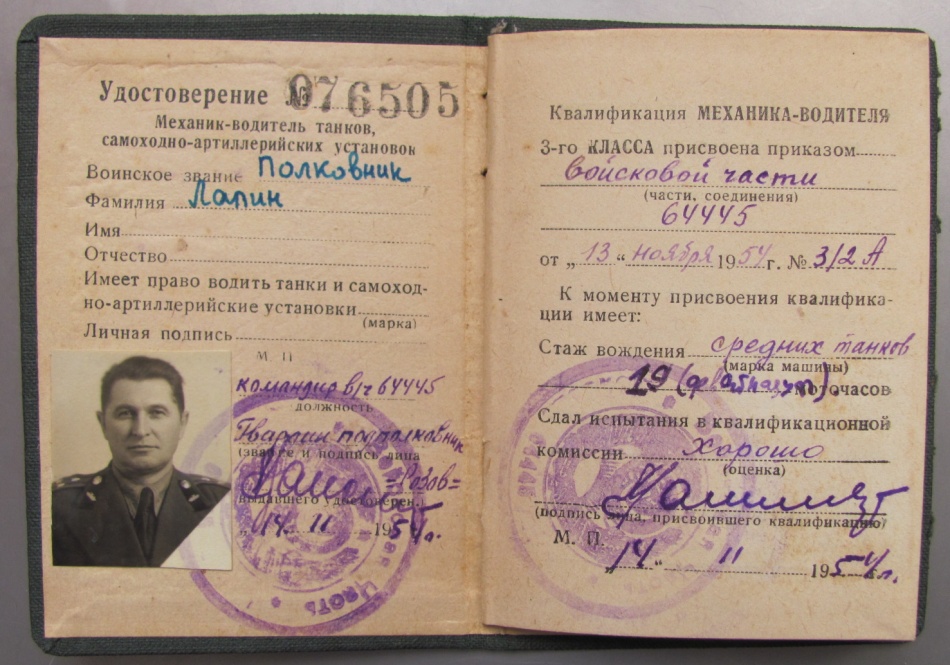 Удостоверение № 076505
Механик-водитель танков,
самоходно-артиллерийских установок
Воинское звание Полковник
Фамилия Лапин
Имя
Отчество
Имеет право водить танки и самоход-
но-артиллерийские установки
(марка)
Личная подпись
М П
командир в/ч 64445
должность
Гвардии подполковник
(звание и подпись лица
=Розов=
выдавшего удостоверен.)
„14" 11 1954г.
Квалификация МЕХАНИКА-ВОДИТЕЛЯ
3-го КЛАССА присвоена приказом
войсковой части
(части, соединения)
64445
от „13" ноября 1954 г. № 312 А
К моменту присвоения квалифика-
ции имеет:
Стаж вождения средних танков
(марка машины)
19 моточасов
Сдал испытания в квалификационной
комиссии хорошо
(оценка)
(подпись лица, присвоившего квалификацию)
М. П.
„14" 11 1954г.